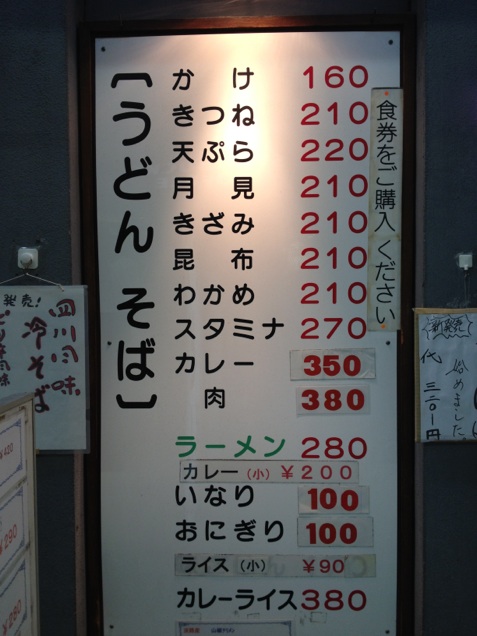 [うどん そば]
かけ 160
きつね 210
天ぷら 220
月見 210
きざみ 210
昆布 210
わかめ 210
スタミナ 270
カレー 350
肉 380
ラーメン 280
カレー(小) ¥200
いなり 100
おにぎり 100
ライス(小) ¥90
カレーライス 380
食券をご購入ください
発売!
四川風味
冷そば
新発売
始めました
代 三二〇円
¥420
¥290